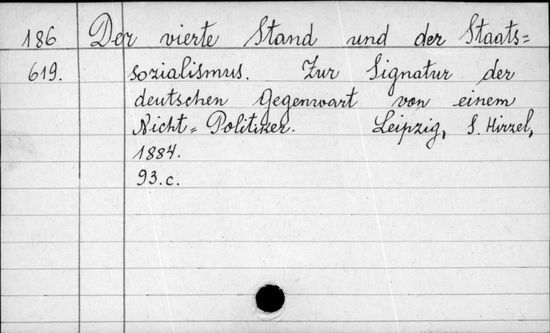 186 Der vierte Stand und der Staats=
619. sozialismus. Zur Signatur der
deutschen Gegenwart von einem
Nicht=Politiker. Leipzig, S. Hirzel,
1884.
93.c.